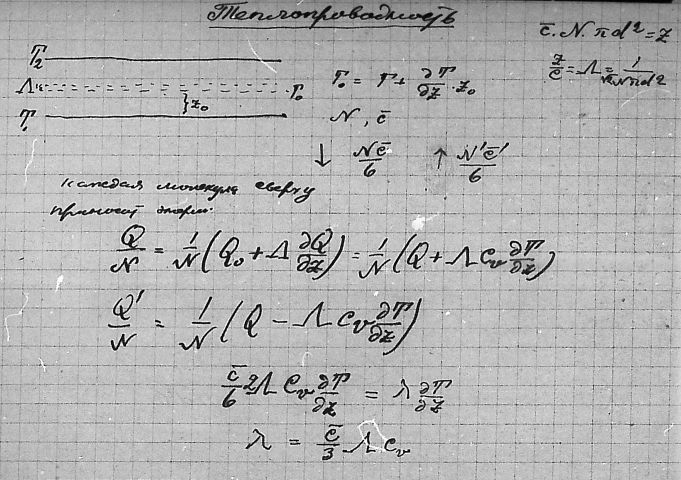 Теплопроводность
c̄. N. πd² = z
z/c̄ = Λ = 1/√2Nπd²
T₂
Λ
T₀
z₀
T₁
T₀ = T + ∂T/∂z · z₀
N, c̄
↓ Nc̄/6 ↑ N'c̄'/6
каждая молекула сверху
приносит энерги.
Q/N = 1/N (Q₀ + Λ ∂Q/∂z) = 1/N (Q + Λ Cᵥ ∂T/∂z)
Q'/N = 1/N (Q − Λ Cᵥ ∂T/∂z)
c̄/6 2Λ Cᵥ ∂T/∂z = λ ∂T/∂z
λ = c̄/3 Λ Cᵥ